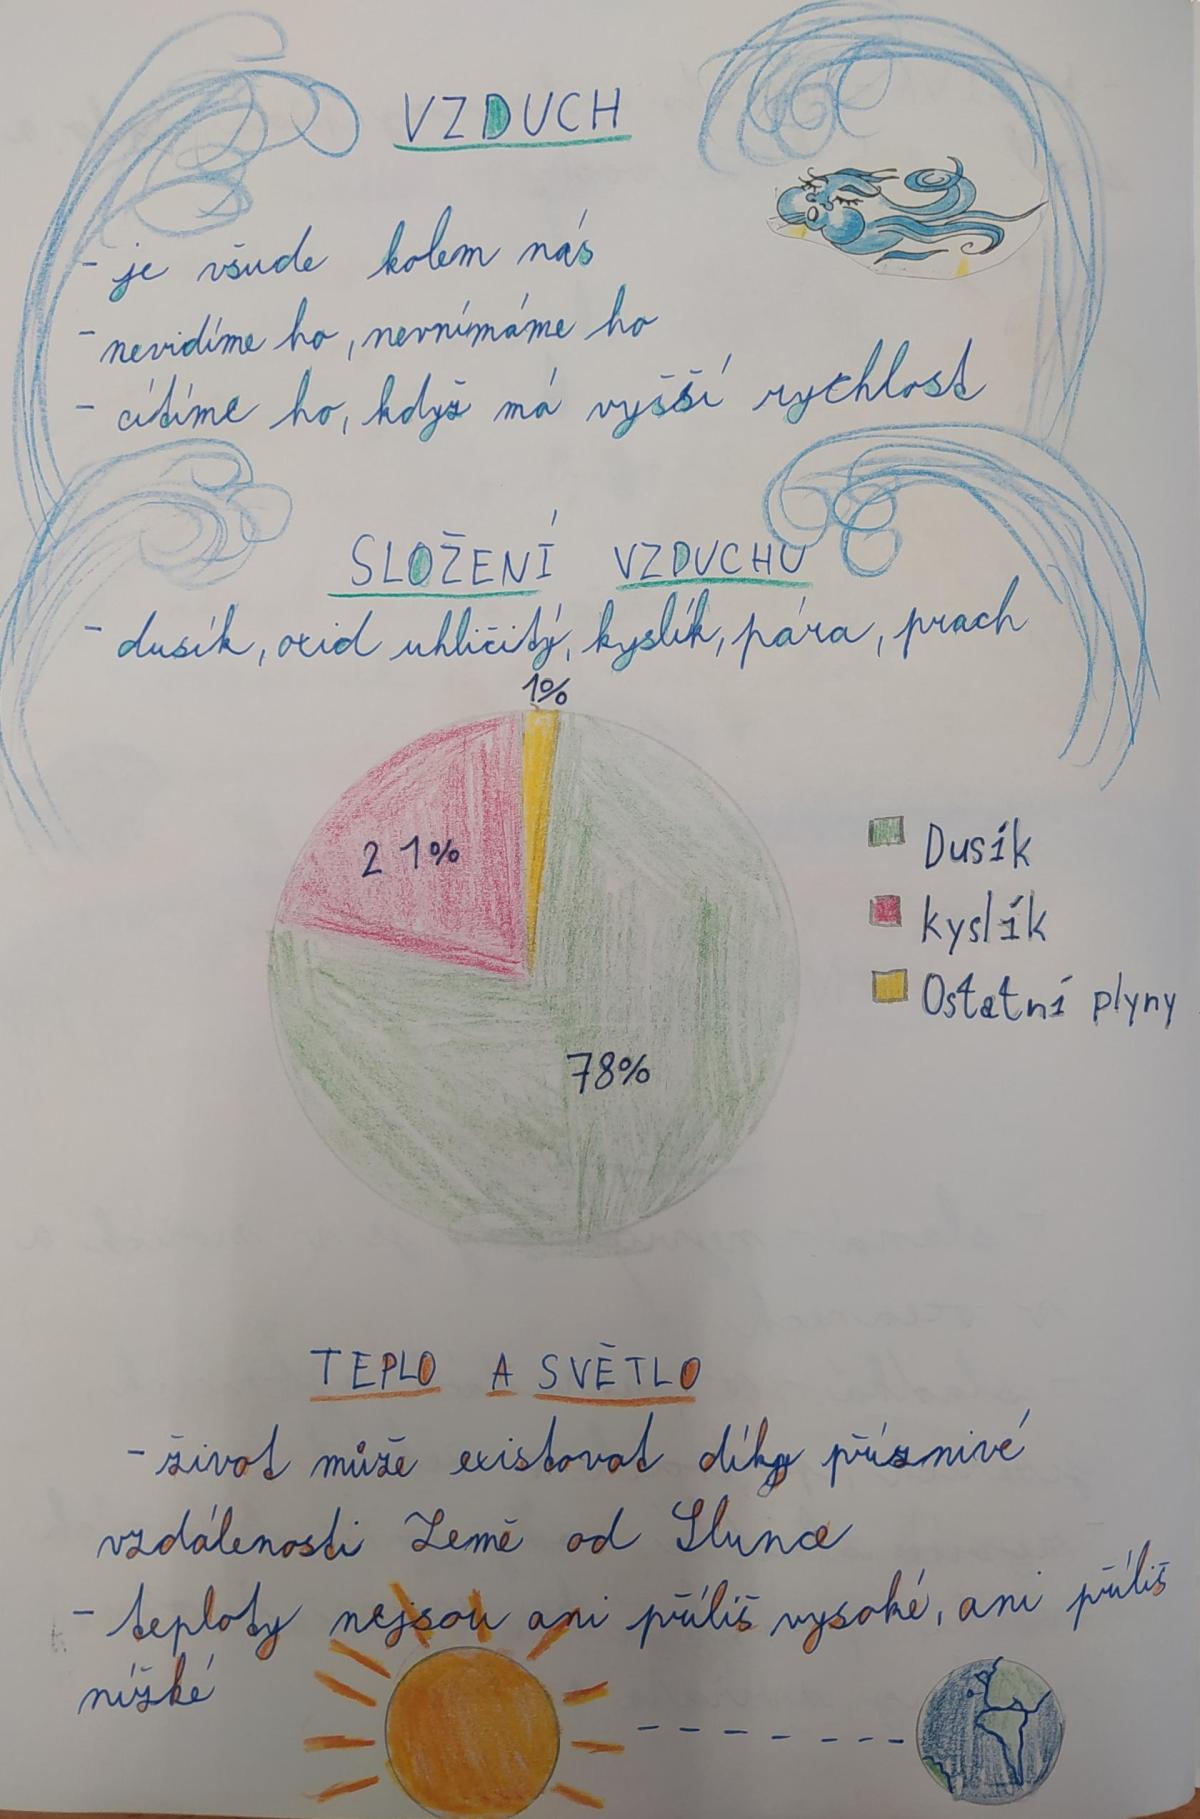 VZDUCH
- je všude kolem nás
- nevidíme ho, nevnímáme ho
- cítíme ho, když má vyšší rychlost
SLOŽENÍ VZDUCHU
- dusík, oxid uhličitý, kyslík, pára, prach
1%
21%
78%
Dusík
kyslík
Ostatní plyny
TEPLO A SVĚTLO
- život může existovat díky příznivé
vzdálenosti Země od Slunce
- teploty nejsou ani příliš vysoké, ani příliš
nízké